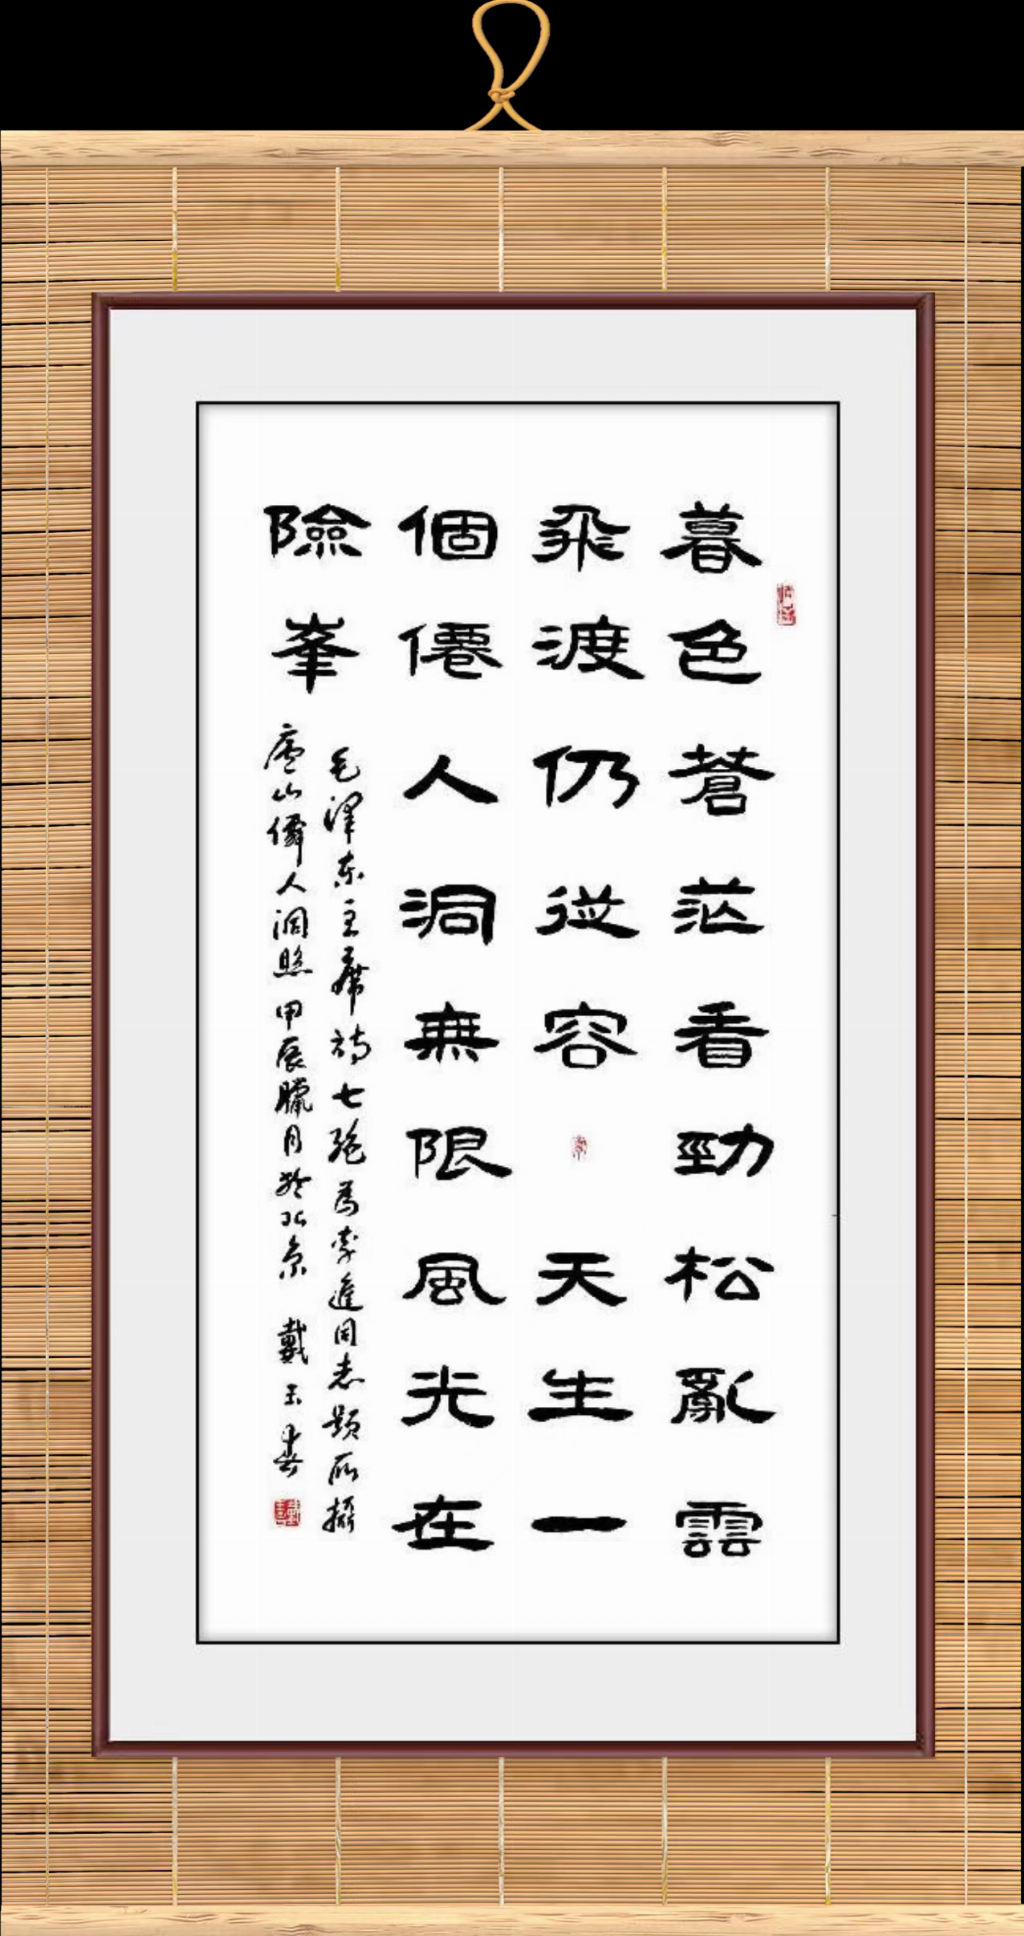 暮色蒼茫看勁松亂雲
飛渡仍從容天生一
個僊人洞無限風光在
險峯
毛澤东主席詩七絕為李進同志题所攝
廬山僊人洞照甲辰臘月於北京戴玉春